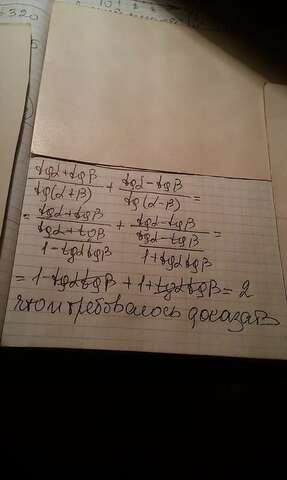 320
tgα+tgβ / tg(α+β) + tgα-tgβ / tg(α-β) =
= tgα+tgβ / (tgα+tgβ / 1-tgαtgβ) + tgα-tgβ / (tgα-tgβ / 1+tgαtgβ) =
= 1-tgαtgβ + 1+tgαtgβ = 2
что и требовалось доказать